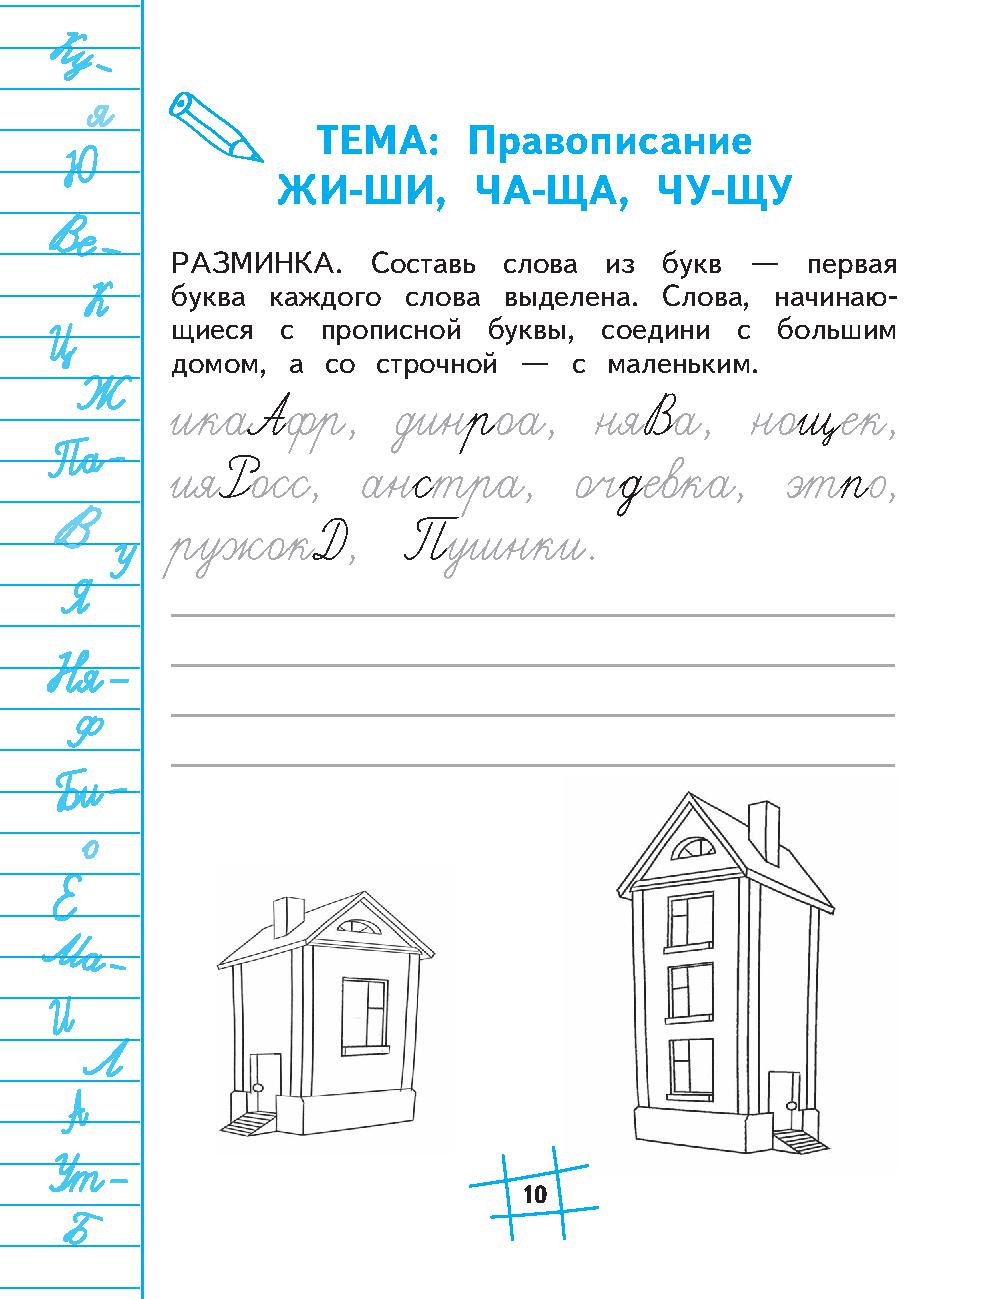 Ку-
я
Ю
Ве-
К
Ц
Ж
Па-
В
У
Я
Ня-
Ф
Би-
о
Е
Ма-
И
Л
А
Ут-
Б
ТЕМА: Правописание
ЖИ-ШИ, ЧА-ЩА, ЧУ-ЩУ
РАЗМИНКА. Составь слова из букв — первая
буква каждого слова выделена. Слова, начинаю-
щиеся с прописной буквы, соедини с большим
домом, а со строчной — с маленьким.
икаАфр, динроа, няВа, нощек,
ияРосс, анстра, очдевка, этпо,
ружокД, Пушинки.
10